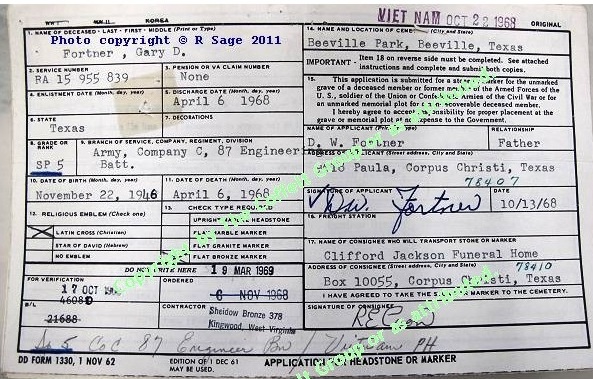 WWI
WWII
KOREA
VIET NAM OCT 22 1968
ORIGINAL
1. NAME OF DECEASED - LAST - FIRST - MIDDLE (Print or Type)
Photo copyright © R Sage 2011
Fortner, Gary D.
2. SERVICE NUMBER
RA 15 955 839
3. PENSION OR VA CLAIM NUMBER
None
4. ENLISTMENT DATE (Month, day, year)
5. DISCHARGE DATE (Month, day, year)
April 6, 1968
6. STATE
Texas
7. DECORATIONS
8. GRADE OR RANK
SP 5
9. BRANCH OF SERVICE, COMPANY, REGIMENT, DIVISION
Army, Company C, 87 Engineer
Batt.
10. DATE OF BIRTH (Month, day, year)
November 22, 1946
11. DATE OF DEATH (Month, day, year)
April 6, 1968
12. RELIGIOUS EMBLEM (Check one)
LATIN CROSS (Christian)
STAR OF DAVID (Hebrew)
NO EMBLEM
13. CHECK TYPE REQUIRED
UPRIGHT MARBLE HEADSTONE
FLAT MARBLE MARKER
FLAT GRANITE MARKER
FLAT BRONZE MARKER
DO NOT WRITE HERE
19 MAR 1969
FOR VERIFICATION
17 OCT
46083
B/L
21688
ORDERED
6 NOV 1968
CONTRACTOR
Sheidow Bronze 378
Kingwood, West Virginia
14. NAME AND LOCATION OF CEMETERY (City and State)
Beeville Park, Beeville, Texas
IMPORTANT - Item 18 on reverse side must be completed. See attached instructions and complete and submit both copies.
15. This application is submitted for a stone or marker for the unmarked
grave of a deceased member or former member of the Armed Forces of the
U. S., soldier of the Union or Confederate Armies of the Civil War or for
an unmarked memorial plot for a non-recoverable deceased member.
I hereby agree to accept responsibility for proper placement at the
grave or memorial plot at no expense to the Government.
NAME OF APPLICANT
D. W. Fortner
RELATIONSHIP
Father
ADDRESS OF APPLICANT (Street address, City and State)
Paula, Corpus Christi, Texas
78407
SIGNATURE OF APPLICANT
D.W. Fortner
DATE
10/13/68
16. FREIGHT STATION
17. NAME OF CONSIGNEE WHO WILL TRANSPORT STONE OR MARKER
Clifford Jackson Funeral Home
ADDRESS OF CONSIGNEE (Street address, City and State)
78410
Box 10055, Corpus Christi, Texas
I HAVE AGREED TO TAKE THE STONE OR MARKER TO THE CEMETERY.
SIGNATURE OF CONSIGNEE
Sp 5 Co C 87 Engineer Bn / Vietnam PH
DD FORM 1330, 1 NOV 62
EDITION OF 1 DEC 61
MAY BE USED.
APPLICATION FOR HEADSTONE OR MARKER